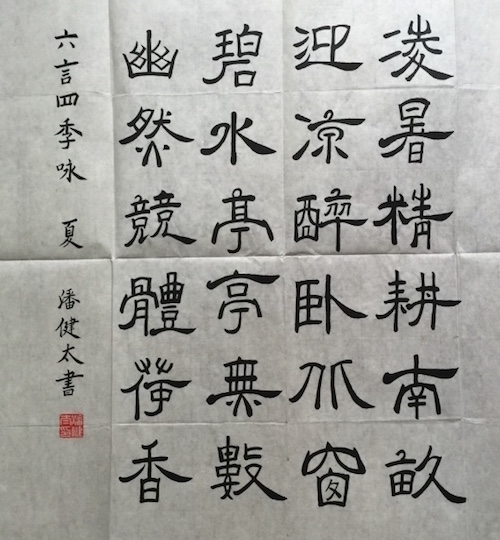 凌暑精耕南畝
迎凉醉卧北窗
碧水亭亭無數
幽然競體荷香
六言四季咏 夏 潘健太書